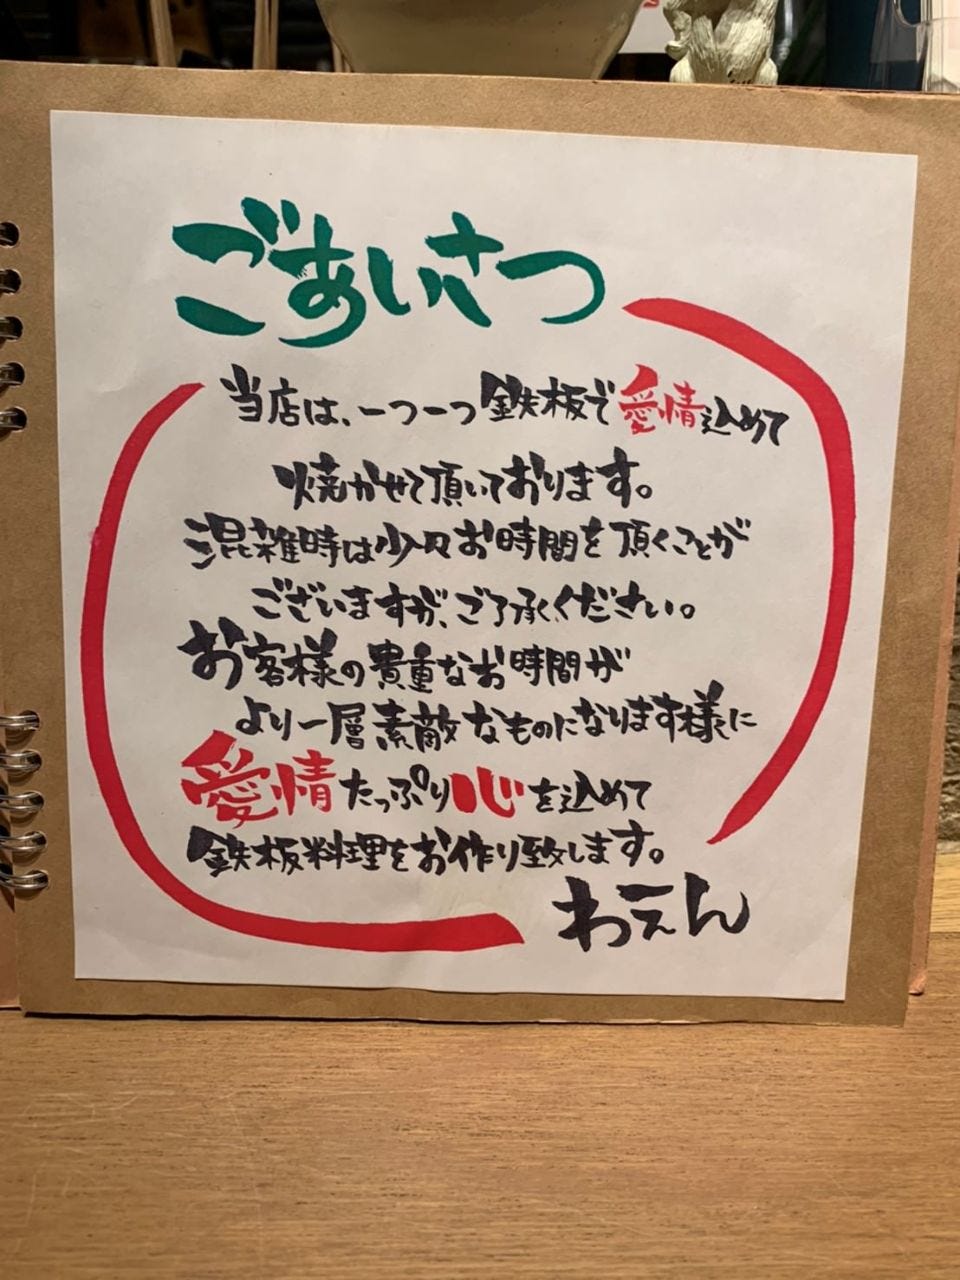 ごあいさつ
当店は、一つ一つ鉄板で愛情込めて
焼かせて頂いております。
混雑時は少々お時間を頂くことが
ございますが、ご了承ください。
お客様の貴重なお時間が
より一層素敵なものになります様に
愛情たっぷり心を込めて
鉄板料理をお作り致します。
わえん